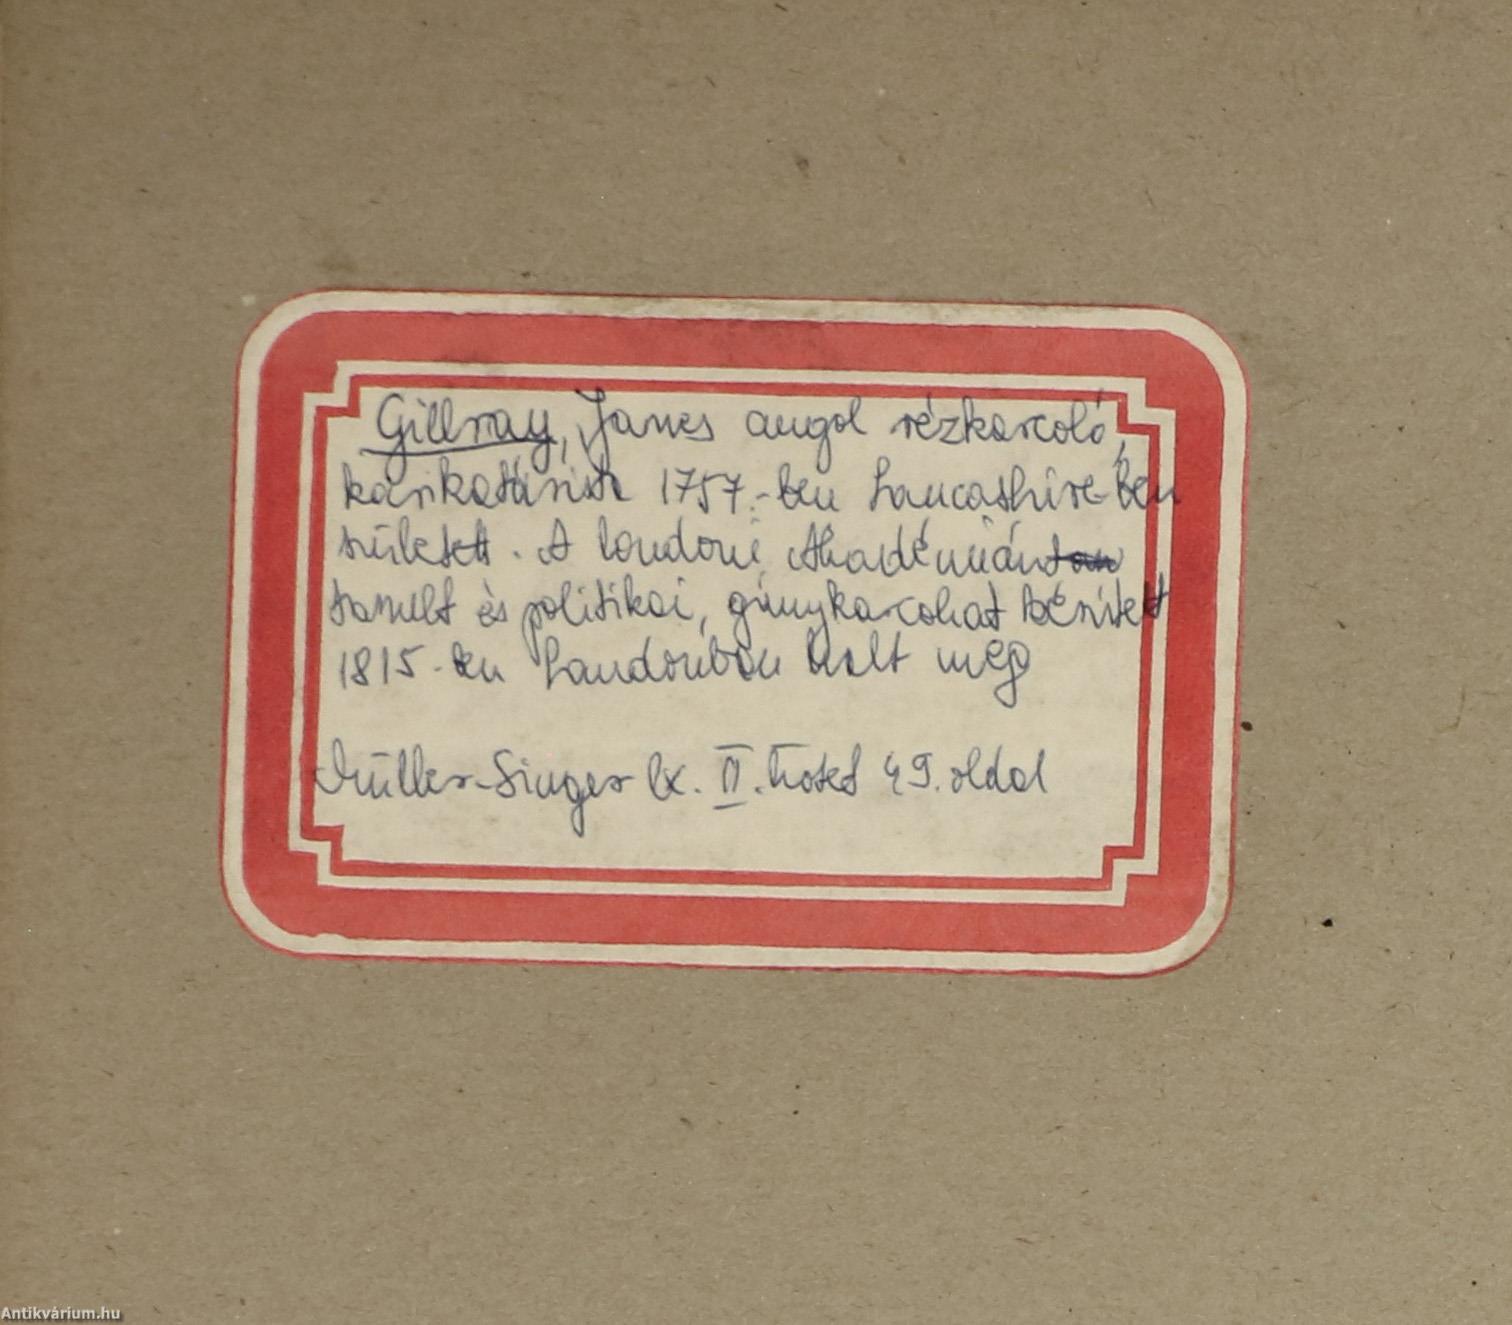 Gillray, James angol rézkarcoló,
karikatúrista 1757.-ben Lancashire-ben
született. A londoni Akadémián
tanult és politikai, gúnykarcokat készített
1815-ben Londonban halt meg
Müller-Singer lx. II. kötet 49. oldal
Antikvárium.hu